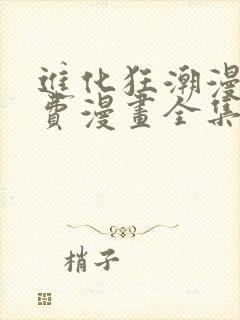 進化狂潮漫
費漫畫全集
梢子